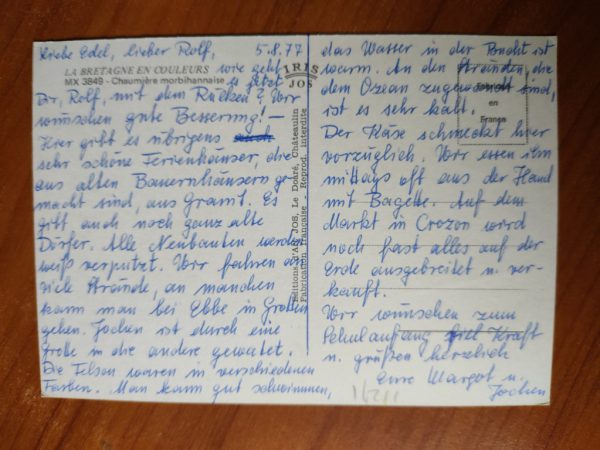 Liebe Edel, lieber Rolf, 5.8.77
LA BRETAGNE EN COULEURS wie geht
MX 3849 - Chaumière morbihannaise es jetzt
Dir, Rolf, mit dem Rücken? Wir
wünschen gute Besserung! -
Hier gibt es übrigens
sehr schöne Ferienhäuser, die
aus alten Bauernhäusern ge-
macht sind, aus Granit. Es
gibt auch noch ganz alte
Dörfer. Alle Neubauten werden
weiß verputzt. Wir fahren an
viele Strände, an manchen
kann man bei Ebbe in Grotten
gehen. Jochen ist durch eine
Grotte in die andere gewatet.
Die Felsen waren in verschiedenen
Farben. Man kann gut schwimmen,
IRIS
JOS
Editions d'Art JOS, Le Doaré, Châteaulin
Fabrication française - Reprod. interdite
das Wasser in der Bucht ist
warm. An den Stränden, die
dem Ozean zugewandt sind,
ist es sehr kalt.
en
France
Der Käse schmeckt hier
vorzüglich. Wir essen ihn
mittags oft aus der Hand
mit Bagette. Auf dem
Markt in Crozon wird
noch fast alles auf der
Erde ausgebreitet u. ver-
kauft.
Wir wünschen zum
Schulanfang viel Kraft
u. grüßen herzlich
Eure Margot u.
Jochen